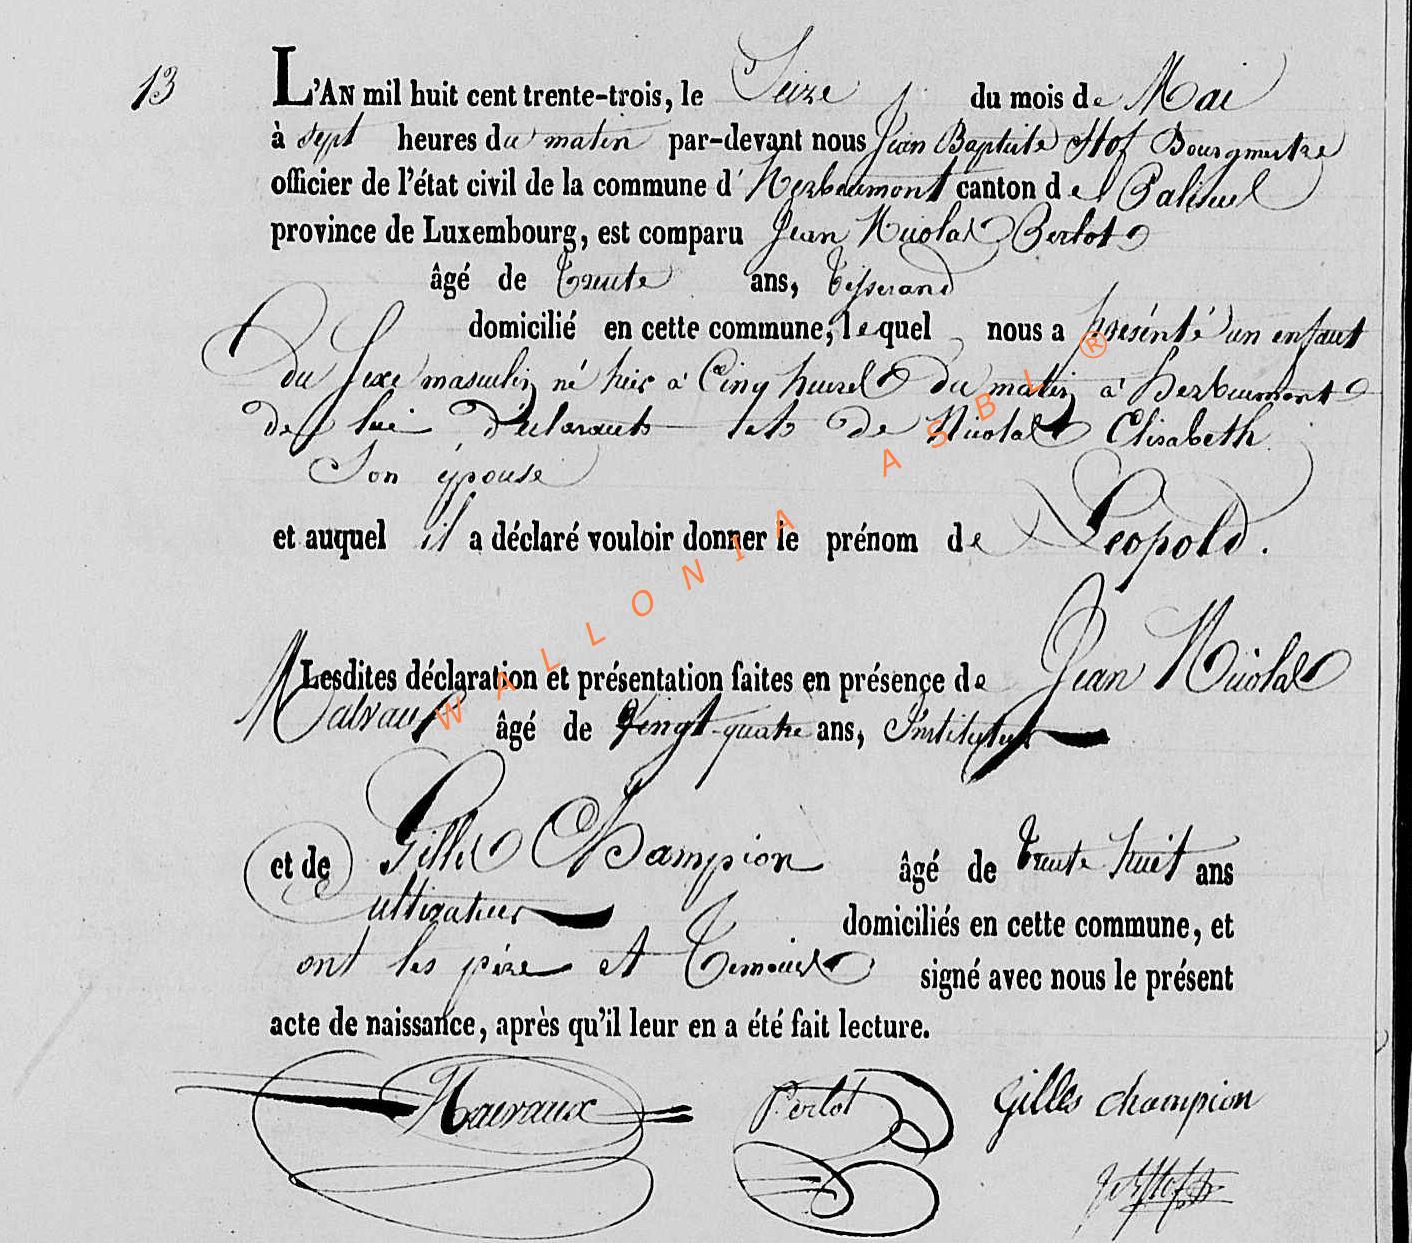 13
L'AN mil huit cent trente-trois, le Seize du mois de Mai
à sept heures du matin par-devant nous Jean Baptiste Hof Bourgmestre
officier de l'état civil de la commune d'Herbeumont canton de Paliseul
province de Luxembourg, est comparu Jean Nicolas Perlot
âgé de Trente ans, Tisserand
domicilié en cette commune, lequel nous a présénté un enfant
du sexe masculin né hier à Cinq heures du matin à herbeumont
de lui déclarant et de Nicolas Elisabeth
Son épouse
et auquel il a déclaré vouloir donner le prénom de Léopold.
Lesdites déclaration et présentation faites en présence de Jean Nicolas
âgé de Vingt-quatre ans, Instituteur
et de Gilles Champion âgé de Trente huit ans
Cultivateur domiciliés en cette commune, et
ont les père et Temoins signé avec nous le présent
acte de naissance, après qu'il leur en a été fait lecture.
Perlot Gilles champion
WALLONIA ASBL ®